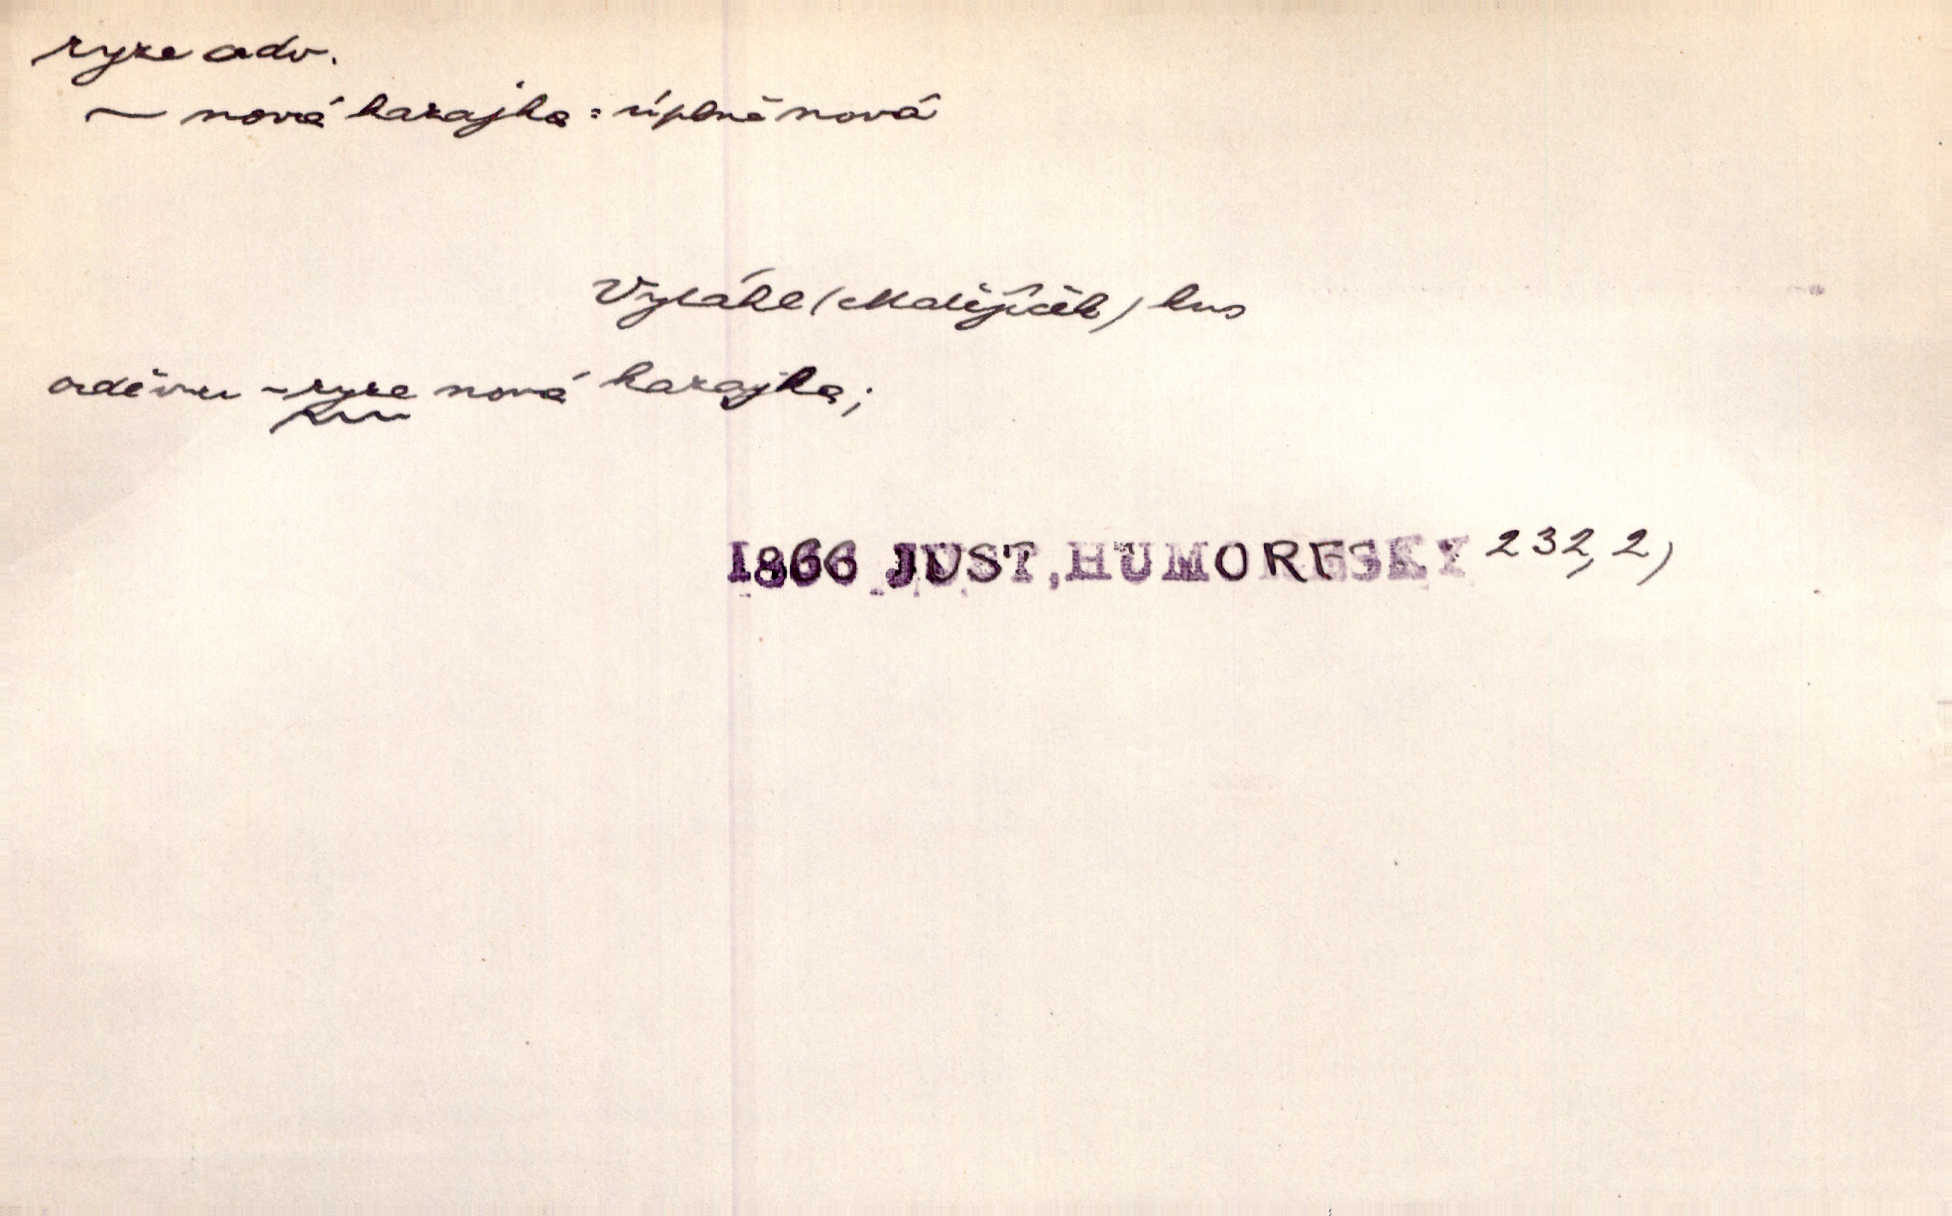 ryze adv.
~ nová kazajka = úplně nová
Vytáhl (Matějíček) kus
oděvu – ryze nová kazajka;
1866 JUST, HUMORESKY 232, 2)